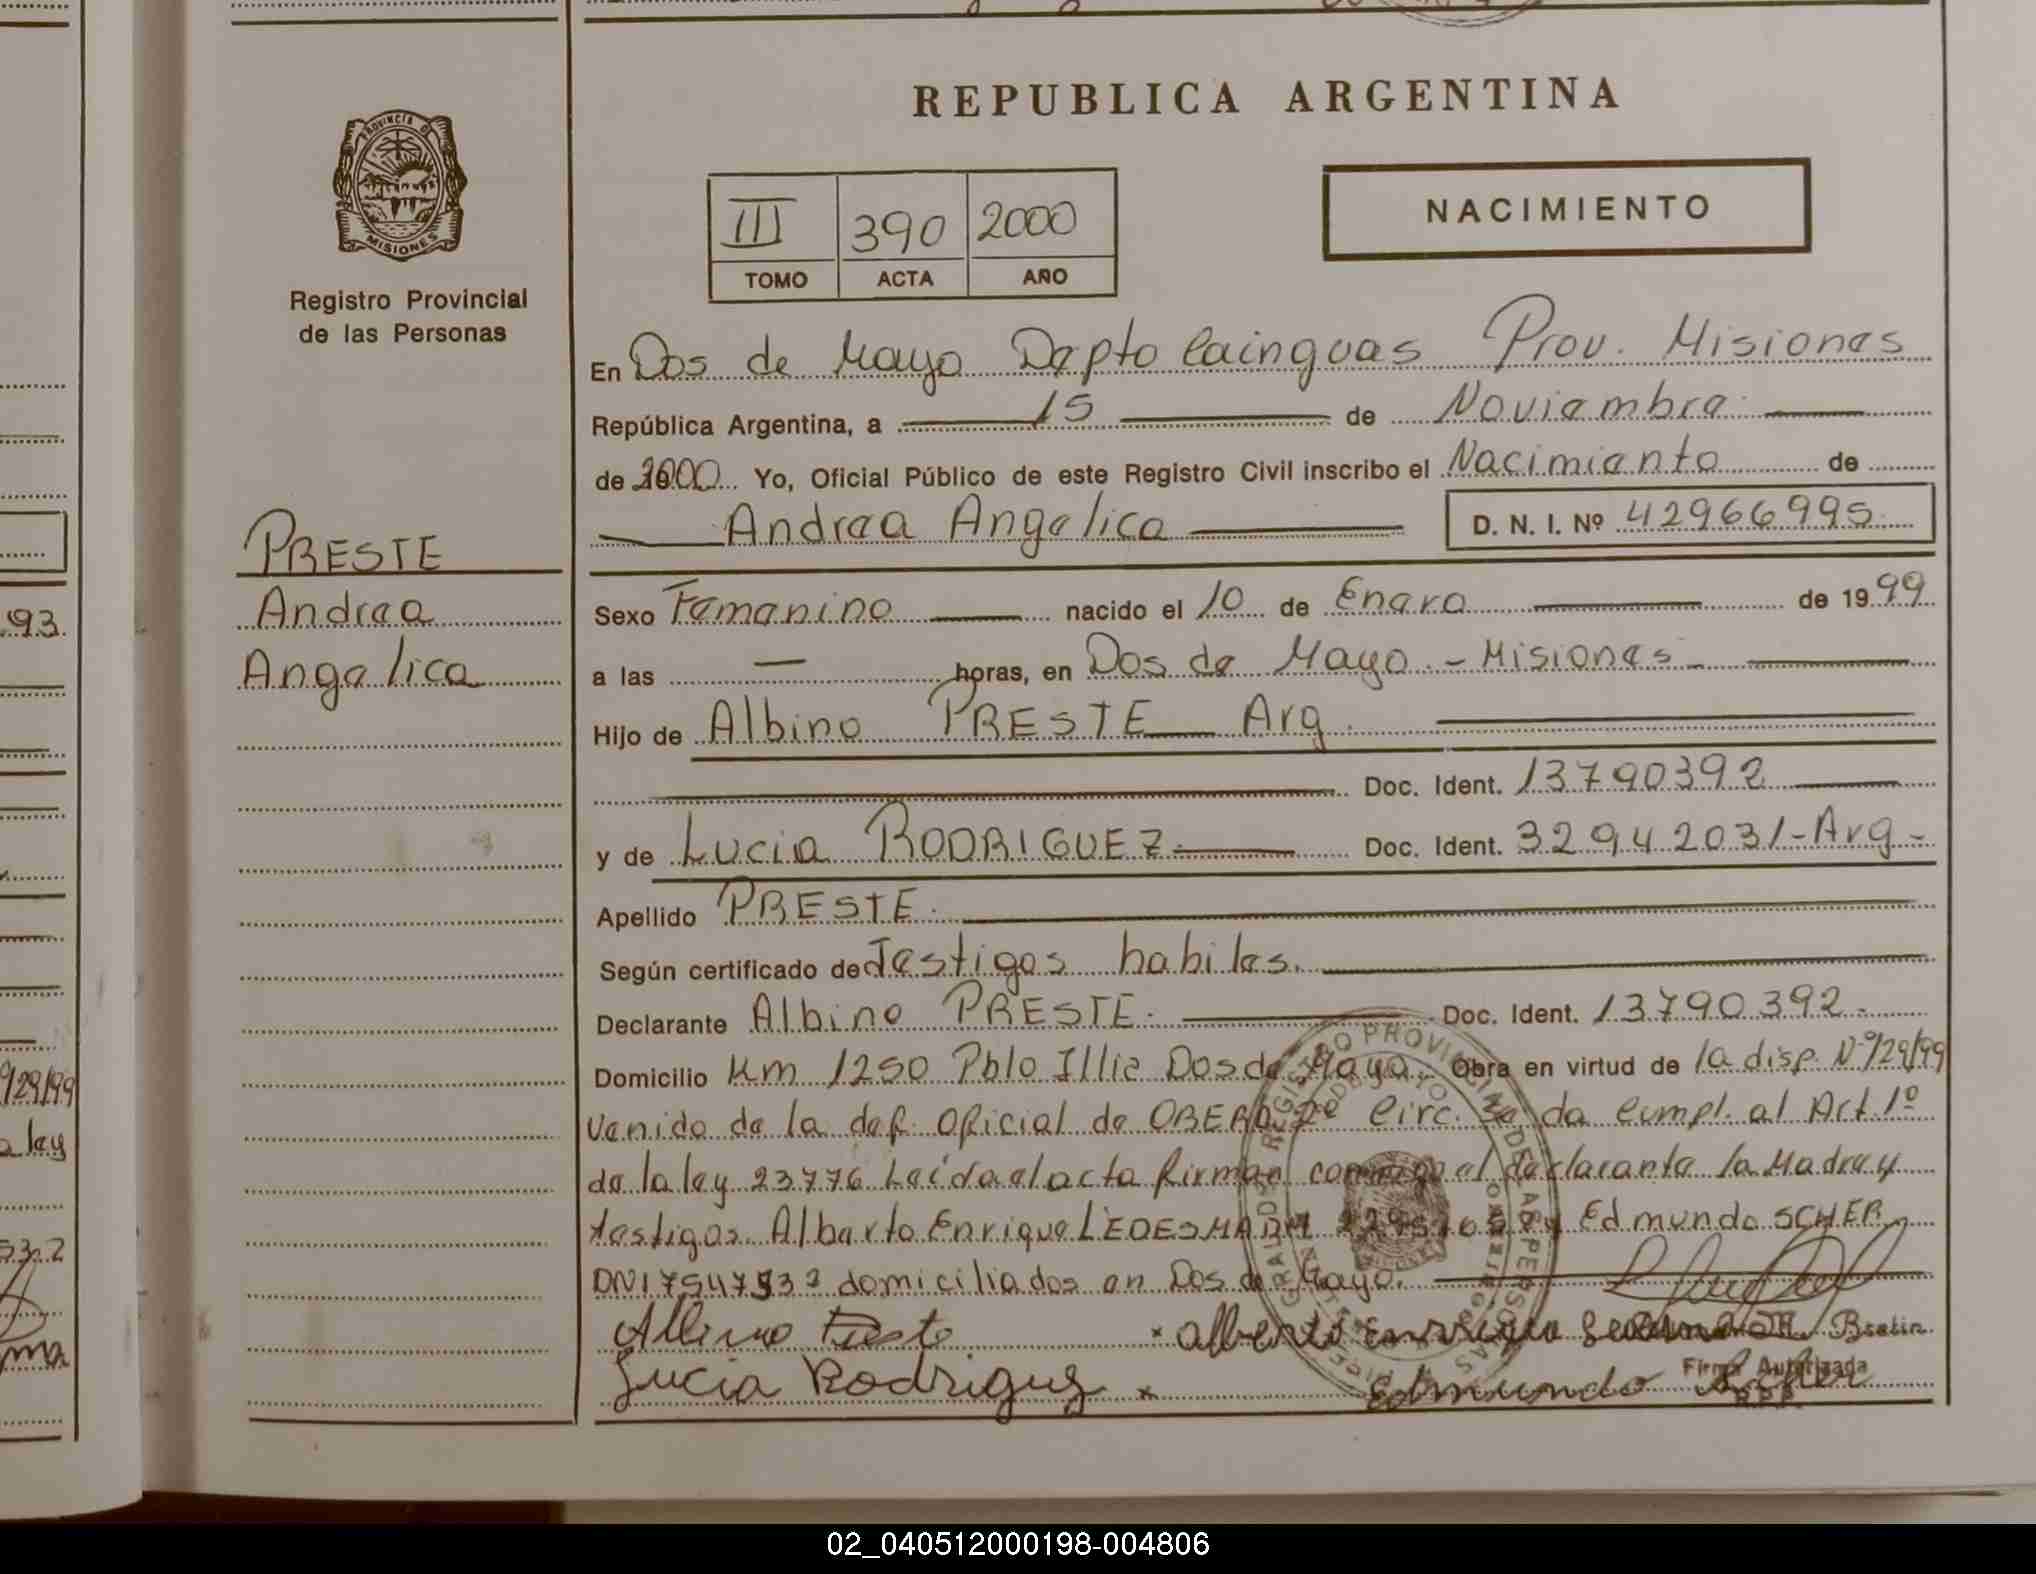 REPUBLICA ARGENTINA
PROVINCIA DE
MISIONES
Registro Provincial
de las Personas
III 390 2000
TOMO ACTA AÑO
NACIMIENTO
En Dos de Mayo Depto Cainguas Prov. Misiones
República Argentina, a 15 de Noviembre
de 2000 Yo, Oficial Público de este Registro Civil inscribo el Nacimiento de
Andrea Angelica D. N. I. Nº 42966995
PRESTE
Andrea
Angelica
Sexo Femenino nacido el 10 de Enero de 1999
a las — horas, en Dos de Mayo - Misiones
Hijo de Albino PRESTE Arg.
Doc. Ident. 13790392
y de Lucia RODRIGUEZ Doc. Ident. 32942031-Arg-
Apellido PRESTE.
Según certificado de testigos habiles.
Declarante Albino PRESTE. Doc. Ident. 13790392.
Domicilio Km 1250 Pblo Illia Dos de Mayo. Obra en virtud de la disp. Nº/29/99
venido de la def. Oficial de OBERA 2º Circ. da Cumpl. al Art. 1º
de la ley 23776 Leída el acta firman conmigo el declarante la Madre y
testigos Alberto Enrique LEDESMA y Edmundo SCHER
domiciliados en Dos de Mayo.
Albino Preste Alberto Enrique Bratin
Lucia Rodriguez Edmundo Scher
Firma Autorizada
REGISTRO PROVINCIAL DE LAS PERSONAS
93
/29/99
ley
02_040512000198-004806